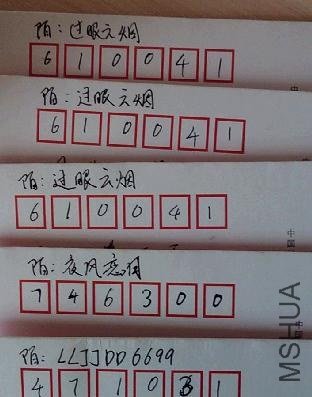 陌:过眼云烟
610041
陌:过眼云烟
610041
陌:过眼云烟
610041
陌:夜风恋雨
746300
陌:LLJJDD6699
471031
MSHUA